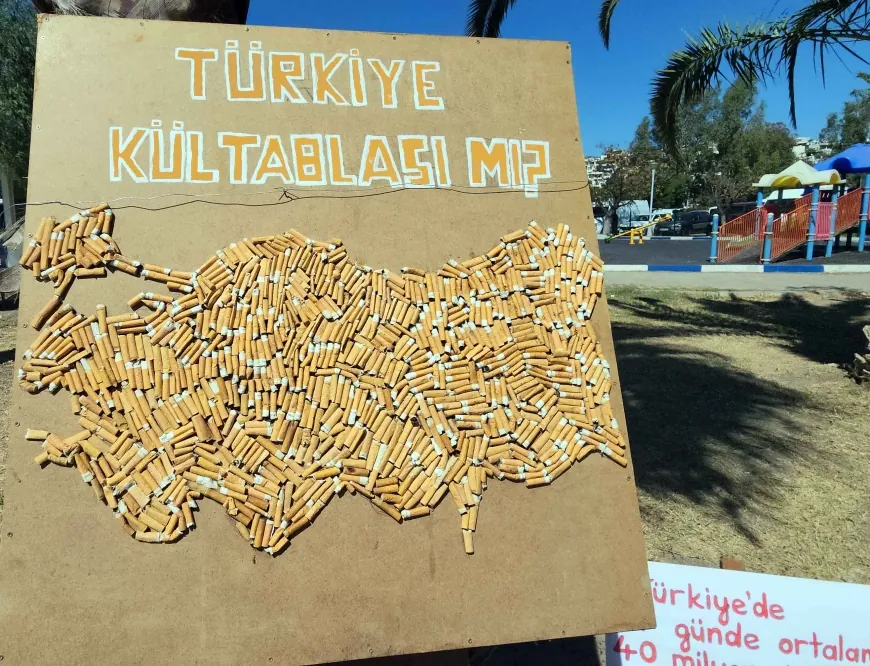 TÜRKİYE
KÜLTABLASI MI?
Türkiye'de
günde ortalam
40 milyon